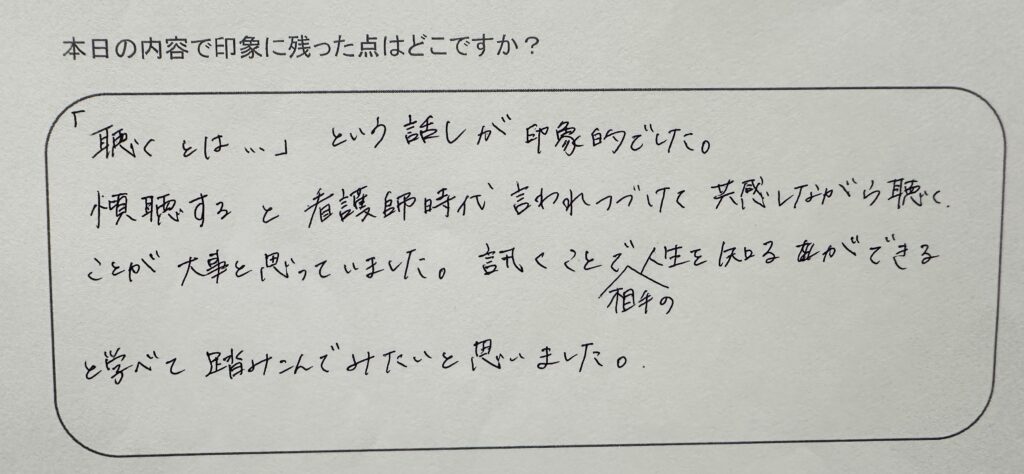 本日の内容で印象に残った点はどこですか？
「聴くとは…」という話しが印象的でした。
傾聴すると看護師時代言われつづけて共感しながら聴く
ことが大事と思っていました。訊くことで相手の人生を知る事ができる
と学べて踏みこんでみたいと思いました。